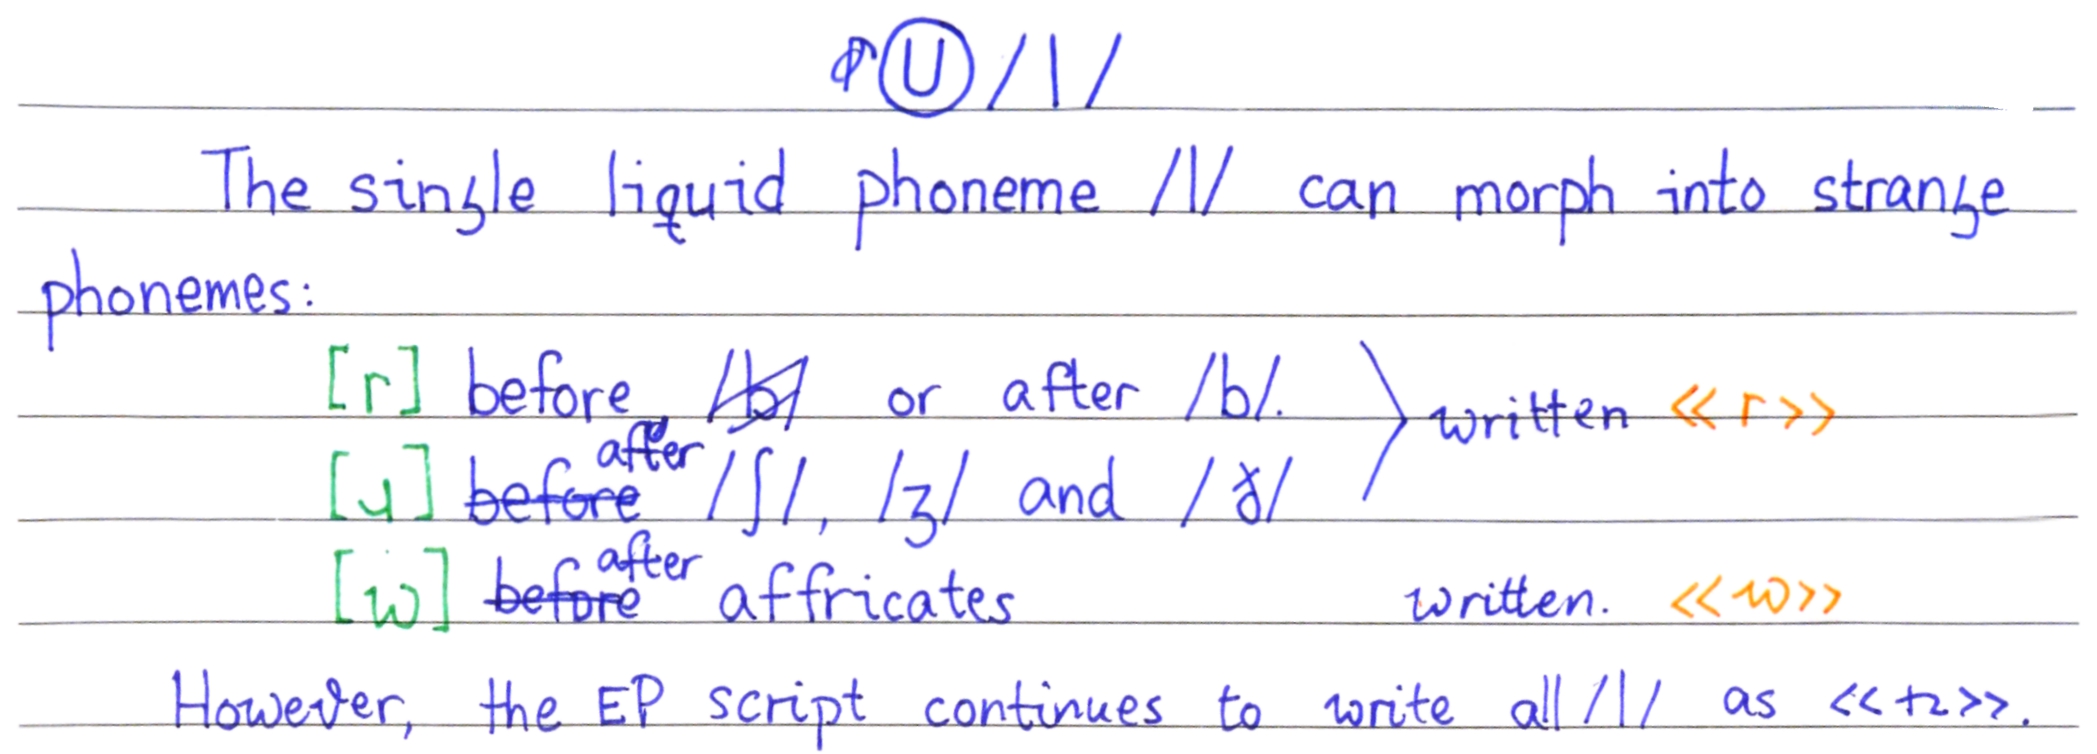 Ⓤ /l/
The single liquid phoneme /l/ can morph into strange
phonemes:
[r] before /b/ or after /b/. written <<r>>
[ɥ] before after /ʃ/, /ʒ/ and /ʠ/
[w] before after affricates written. <<w>>
However, the EP script continues to write all /l/ as <<た>>.